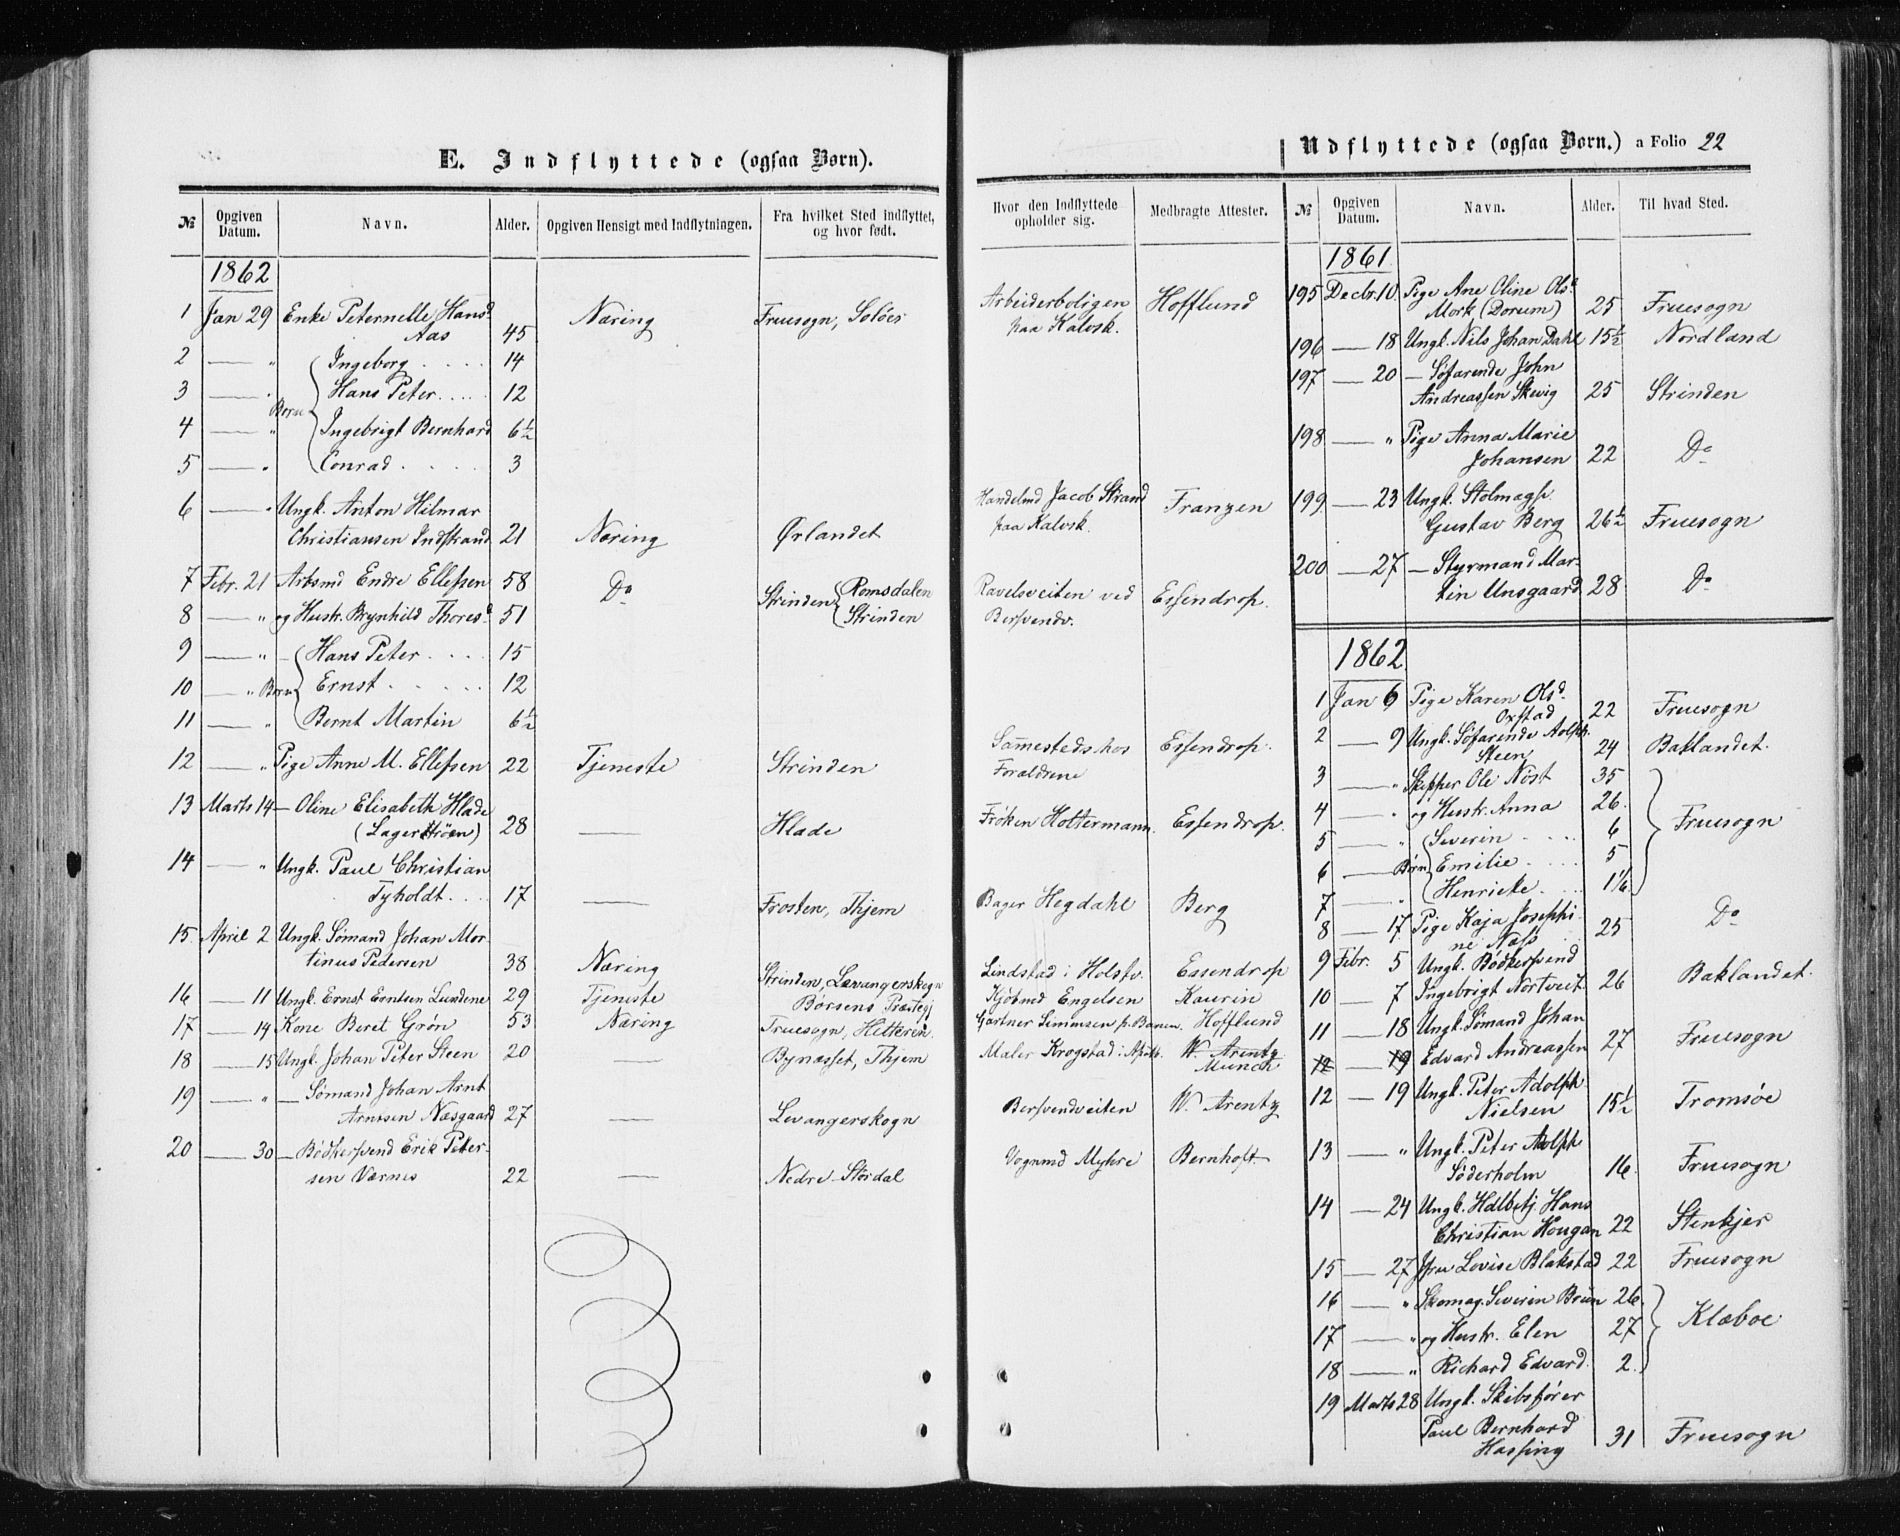 E. Indflyttede (ogsaa Børn).
№ Opgiven Datum. Navn. Alder. Opgiven Hensigt med Indflytningen. Fra hvilket Sted indflyttet, og hvor født. Hvor den Indflyttede opholder sig. Medbragte Attester.
1862
1 Jan 29 Enke Peternelle Hansd
Aas 45 Næring Fruesogn, Soløer Arbeiderboligen paa Kalvsk. Hofflund
2 — " Børn Ingeborg 14
3 — " Hans Peter 12
4 — " Ingebrigt Bernhard 6½
5 — " Conrad 3
6 — " Ungk. Anton Hilmar
Christiansen Indstrand 21 Næring Ørlandet Handelmd Jacob Strand paa Kalvsk. Franzen
7 Febr. 21 Arbsmd Endre Ellefsen 58 Do Strinden Romsdalen Ravelsveiten ved Bersvendv. Essendrop.
8 — " og Hustr. Brynhild Thoresd 51 Strinden
9 — " Børn Hans Peter 15
10 — " Ernst 12
11 — " Bernt Martin 6½
12 — " Pige Anne M. Ellefsen 22 Tjeneste Strinden Sammesteds hos Forældrene Essendrop.
13 Marts 14 — Oline Elisabeth Hlade
(Lagerströen) 28 — Hlade Frøken Hottermann. Essendrop.
14 — " Ungk. Paul Christian
Tyholdt 17 — Frosten, Thjem Bager Hegdahl Berg
15 April 2 Ungk. Sømand Johan Mor
tinus Pedersen 38 Næring Strinden, Levangerskogn Lindstad i Holstv. Essendrop
16 — 11 Ungk. Ernst Erntsen Lundene 29 Tjeneste Børsens Præsteg. Kjøbmd Engelsen Kaurin
17 — 14 Kone Beret Grøn 53 Næring Fruesogn, Hitteren. Gartner Simmsen p. Banen. Hofflund
18 — 15 Ungk. Johan Peter Steen 20 — Bynæsset, Thjem Maler Krogstad i W. Arentz Munch
19 — " — Sømand Johan Arnt
Arntsen Næsgaard 27 — Levangerskogn Bersvendveiten W. Arentz
20 — 30 — Bødkersvend Erik Peter-
sen Værnes 22 — Nedre-Stördal Vognmd Myhre Bernhoft
Udflyttede (ogsaa Børn.) a Folio 22
№ Opgiven Datum. Navn. Alder. Til hvad Sted.
1861
195 Decbr. 10. Pige Ane Oline Olsd
Mork (Dorum) 25 Fruesogn
196 — 18 Ungk. Nils Johan Dahl 15½ Nordland
197 — 20 — Söfarende John
Andreassen Skevig 25 Strinden
198 — " Pige Anna Marie
Johansen 22 Do
199 — 23 Ungk. Stolmagsv.
Gustav Berg 26½ Fruesogn
200 — 27 — Styrmand Mar-
tin Unsgaard 28 Do
1862
1 Jan 6 Pige Karen Olsd.
Oxstad 22 Fruesogn
2 — 9 Ungk. Söfarende Adlph.
Steen 24 Baklandet.
3 — " Skipper Ole Nöst 35
4 — " og Hustr. Anna 26. Fruesogn
5 — " Børn Severin 6
6 — Emilie 5
7 — " Henrieke 1 1/6
8 — 17 Pige Kaja Josephi
ne Næss 25 Do
9 Febr. 5 Ungk. Bødkersvend
10 — 7 Ingebrigt Nortveit 26 Baklandet.
11 — 18 Ungk. Sømand Johan
12 — 19 Edvard Andreassen 27 Fruesogn
12 — 19 Ungk. Peter Adolph
Nielsen 15½ Tromsøe
13 — " Ungk. Peter Adolph
Söderholm 16. Fruesogn
14 — 24 Ungk. Hdlbetj. Hans
Christian Hougan 22 Stenkjer
15 — 27 Jfru Lovise Blakstad 22 Fruesogn
16 — " Skomag. Severin Bruun 26.
17 — " og Hustr. Elen 27 Klæboe
18 — " Richard Edvard. 2.
19 Marts 28 Ungk. Skibsfører
Paul Bernhard
Hassing 31 Fruesogn